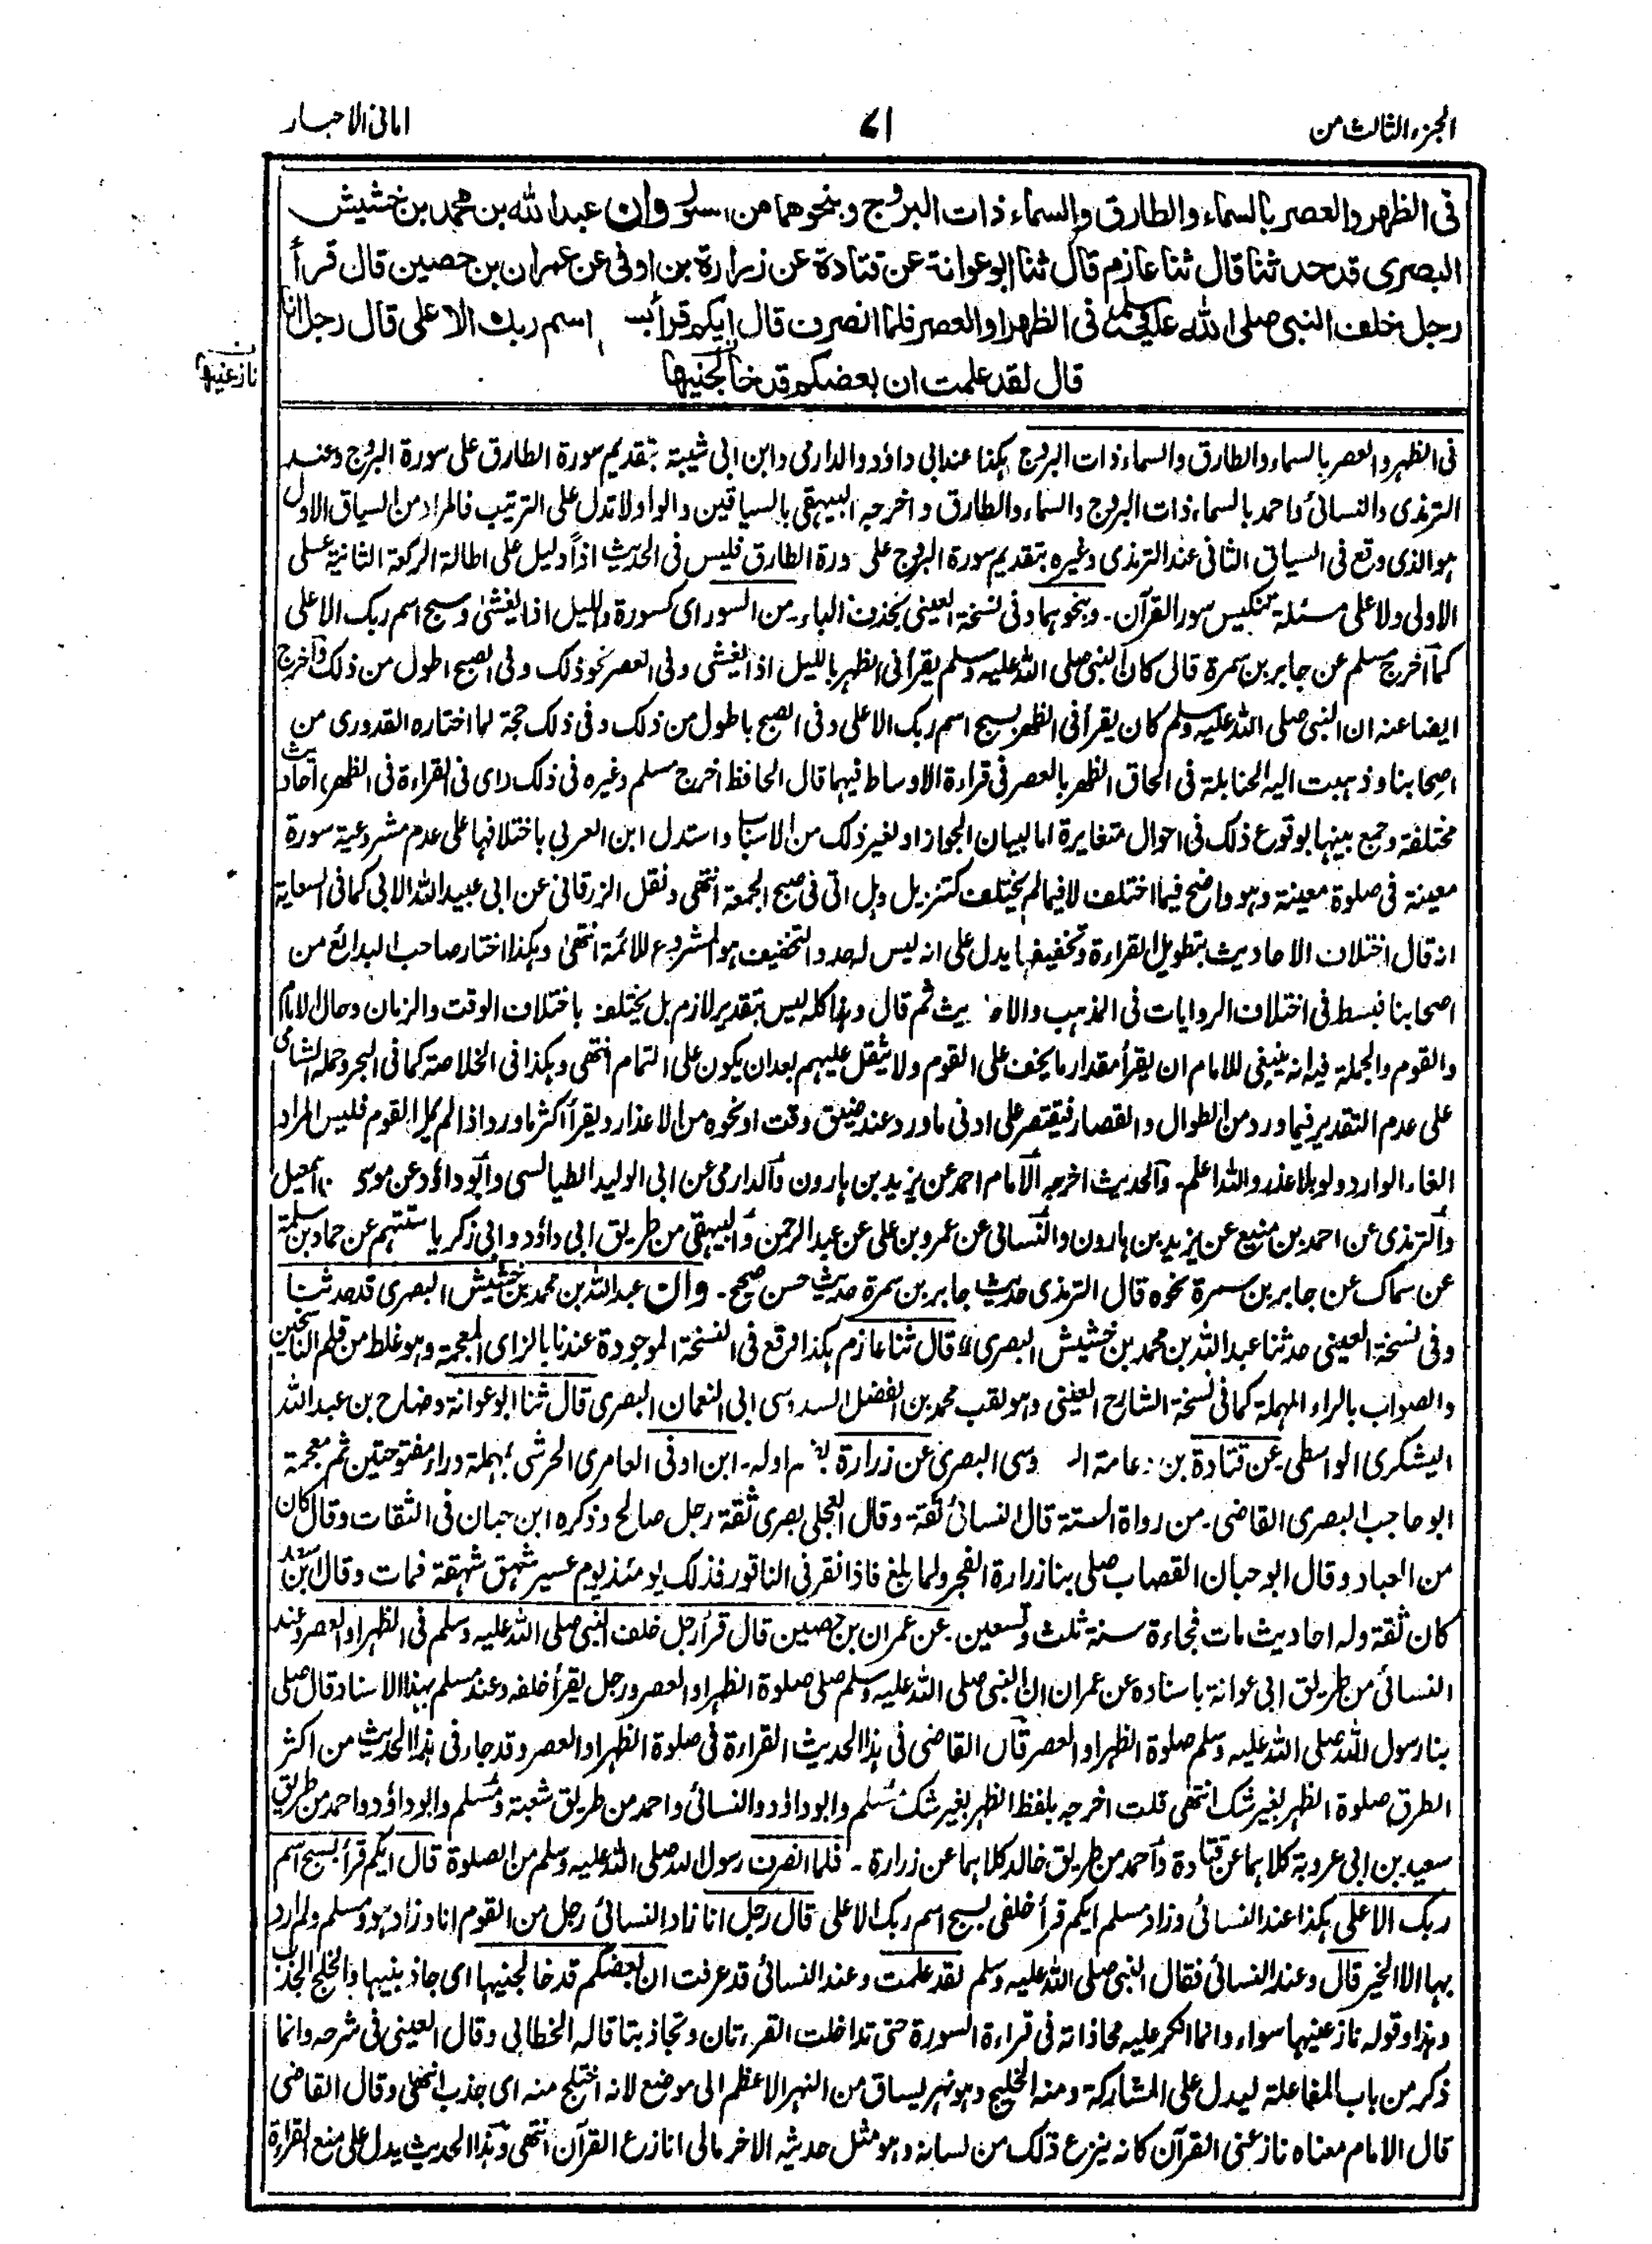 الجزء الثالث من
٧١
امانی الاحبار
فی الظهر والعصر بالسماء والطارق والسماء ذات البروج ونحوهما من السور وان عبد الله بن محمد بن خشیش
البصری قد حدثنا قال ثنا عازم قال ثنا ابو عوانة عن قتادة عن زرارة بن اوفی عن عمران بن حصین قال قرأ
رجل خلف النبی صلی الله علیه وسلم فی الظهر او العصر فلما انصرف قال ایکم قرأ بسبح اسم ربک الاعلی قال رجل انا
قال لقد علمت ان بعضکم قد خالجنیها
نازعنیها
فی الظهر والعصر بالسماء والطارق والسماء ذات البروج هکذا عند ابی داؤد والدارمی وابن ابی شیبة بتقدیم سورة الطارق علی سورة البروج وعند
الترمذی والنسائی واحمد بالسماء ذات البروج والسماء والطارق واخرجه البیهقی بالسیاقین والواو لا تدل علی الترتیب فالمراد من السیاق الاول
هو الذی وقع فی السیاق الثانی عند الترمذی وغیره بتقدیم سورة البروج علی سورة الطارق فلیس فی الحدیث اذاً دلیل علی اطالة الرکعة الثانیة علی
الاولی ولا علی مسئلة تنکیس سور القرآن۔ ونحوهما وفی نسخة العینی بحذف الباء۔ من السور ای کسورة واللیل اذا یغشی وسبح اسم ربک الاعلی
کما اخرج مسلم عن جابر بن سمرة قال کان النبی صلی الله علیه وسلم یقرأ فی الظهر باللیل اذا یغشی وفی العصر نحو ذلک وفی الصبح اطول من ذلک واخرج
ایضا عنه ان النبی صلی الله علیه وسلم کان یقرأ فی الظهر بسبح اسم ربک الاعلی وفی الصبح باطول من ذلک وفی ذلک حجة لما اختاره القدوری من
اصحابنا وذهبت الیه الحنابلة فی الحاق الظهر بالعصر فی قراءة الاوساط فیهما قال الحافظ اخرج مسلم وغیره فی ذلک (ای فی القراءة فی الظهر) احادیث
مختلفة وجمع بینها بوقوع ذلک فی احوال متغایرة اما لبیان الجواز او لغیر ذلک من الاسباب واستدل ابن العربی باختلافها علی عدم مشروعیة سورة
معینة فی صلوة معینة وهو واضح فیما اختلف لا فیما لم یختلف کتنزیل وهل اتی فی صبح الجمعة انتهی ونقل الزرقانی عن ابی عبید الله الابی کما فی السعایة
انه قال اختلاف الاحادیث بتطویل القراءة وتخفیفها یدل علی انه لیس له حد والتخفیف هو المشروع للائمة انتهی وهکذا اختار صاحب البدائع من
اصحابنا فبسط فی اختلاف الروایات فی المذهب والاحادیث ثم قال وهذا کله لیس بتقدیر لازم بل یختلف باختلاف الوقت والزمان وحال الامام
والقوم والجملة فیه انه ینبغی للامام ان یقرأ مقدار ما یخف علی القوم ولا یثقل علیهم بعد ان یکون علی التمام انتهی وهکذا فی الخلاصة کما فی البحر وحمله الشامی
علی عدم التقدیر فیما ورد من الطوال والقصار فیقتصر علی ادنی ما ورد عند ضیق وقت او نحوه من الاعذار ویقرأ اکثر ما ورد اذا لم یمل القوم فلیس المراد
الغاء الوارد ولو بلا عذر والله اعلم۔ والحدیث اخرجه الامام احمد عن یزید بن هارون والدارمی عن ابی الولید الطیالسی وابو داؤد عن موسی بن اسمعیل
والترمذی عن احمد بن منیع عن یزید بن هارون والنسائی عن عمرو بن علی عن عبد الرحمن والبیهقی من طریق ابی داؤد وابی زکریا ستتهم عن حماد بن سلمة
عن سماک عن جابر بن سمرة نحوه قال الترمذی حدیث جابر بن سمرة حدیث حسن صحیح۔ وان عبد الله بن محمد بن خشیش البصری قد حدثنا
وفی نسخة العینی حدثنا عبد الله بن محمد بن خشیش البصری۔ قال ثنا عازم هکذا وقع فی النسخة الموجودة عندنا بالزای المعجمة وهو غلط من قلم الناسخین
والصواب بالراء المهملة کما فی نسخة الشارح العینی وهو لقب محمد بن الفضل السدوسی ابی النعمان البصری قال ثنا ابو عوانة وضاح بن عبد الله
الیشکری الواسطی عن قتادة بن دعامة السدوسی البصری عن زرارة بضم اوله۔ ابن اوفی العامری الحرشی بمهملة وراء مفتوحتین ثم معجمة
ابو حاجب البصری القاضی۔ من رواة الستة قال النسائی ثقة وقال العجلی بصری ثقة رجل صالح وذکره ابن حبان فی الثقات وقال کان
من العباد وقال ابو حبان القصاب صلی بنا زرارة الفجر ولما بلغ فاذا نقر فی الناقور فذلک یومئذ یوم عسیر شهق شهقة فمات وقال ابن سعد
کان ثقة وله احادیث مات فجاءة سنة ثلث وتسعین۔ عن عمران بن حصین قال قرأ رجل خلف النبی صلی الله علیه وسلم فی الظهر او العصر وعند
النسائی من طریق ابی عوانة باسناده عن عمران ان النبی صلی الله علیه وسلم صلی صلوة الظهر او العصر ورجل یقرأ خلفه وعند مسلم بهذا الاسناد قال صلی
بنا رسول الله صلی الله علیه وسلم صلوة الظهر او العصر قال القاضی فی هذا الحدیث القراءة فی صلوة الظهر او العصر وقد جاء فی هذا الحدیث من اکثر
الطرق صلوة الظهر بغیر شک انتهی قلت اخرجه بلفظ الظهر بغیر شک مسلم وابو داؤد والنسائی واحمد من طریق شعبة ومسلم وابو داؤد واحمد من طریق
سعید بن ابی عروبة کلاهما عن قتادة واحمد من طریق خالد کلاهما عن زرارة۔ فلما انصرف رسول الله صلی الله علیه وسلم من الصلوة قال ایکم قرأ بسبح اسم
ربک الاعلی هکذا عند النسائی وزاد مسلم ایکم قرأ خلفی بسبح اسم ربک الاعلی قال رجل انا زاد النسائی رجل من القوم انا وزاد هو ومسلم ولم ارد
بها الا الخیر قال وعند النسائی فقال النبی صلی الله علیه وسلم لقد علمت وعند النسائی قد عرفت ان بعضکم قد خالجنیها ای جاذبنیها والخلج الجذب
وهذا وقوله نازعنیها سواء وانما انکر علیه محاذاته فی قراءة السورة حتی تداخلت القراءتان وتجاذبتا قاله الخطابی وقال العینی فی شرحه وانما
ذکر من باب المفاعلة لیدل علی المشارکة ومنه الخلیج وهو نهر یساق من النهر الاعظم الی موضع لانه اختلج منه ای جذب انتهی وقال القاضی
قال الامام معناه نازعنی القرآن کانه ینزع ذلک من لسانه وهو مثل حدیثه الاخر مالی انازع القرآن انتهی وهذا الحدیث یدل علی منع القراءة